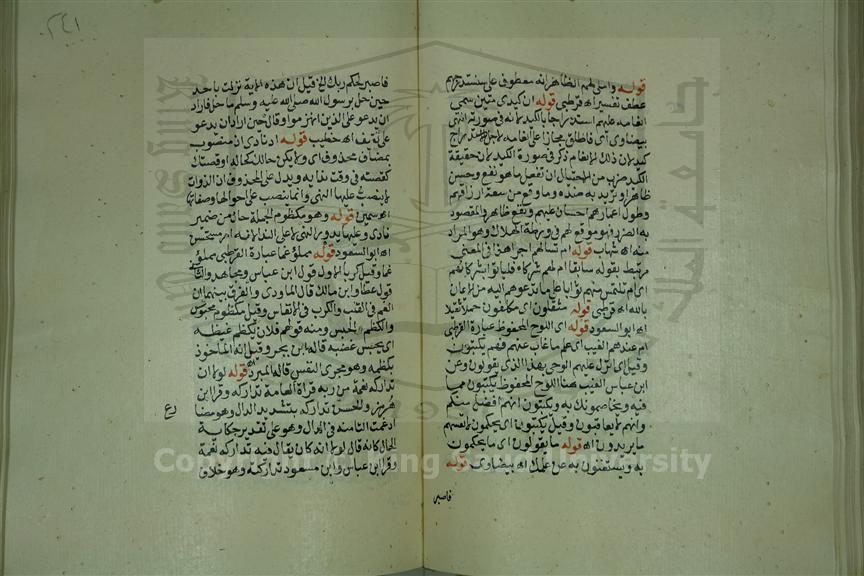 قوله واملى لهم الظاهر انه معطوف على سنستدرجهم
عطف تفسير اه قرطبي قوله ان كيدي متين سمى
انعامه عليهم استدراجا بالكيد لانه في صورته انتهى
بيضاوي اي فاطلق مجازا على انعامه لاجل الاستدراج
كيد لان ذلك الانعام ذكر في صورة الكيد لان حقيقة
الكيد ضرب من الاحتيال ان تفعل ما هو نفع وحسن
ظاهرا وتريد به ضده وما وقع من سعة ارزاقهم
وطول اعمارهم احسان عليهم ونفع ظاهر والمقصود
به الضرر فهو موقع لهم في ورطة الهلاك وهو المراد
منه اه شهاب قوله ام تسالهم اجرا هذا في المعنى
مرتبط بقوله سابقا ام لهم شركاء فلياتوا بشركائهم
اي ام تلتمس منهم ثوابا على ما تدعوهم اليه من الايمان
بالله اه قرطبي قوله مثقلون اي مكلفون حملا ثقيلا
اه ابو السعود قوله اي اللوح المحفوظ عبارة القرطبي
ام عندهم الغيب اي علم ما غاب عنهم فهم يكتبون
وقيل اي انزل عليهم الوحي بهذا الذي يقولون وعن
ابن عباس الغيب هنا اللوح المحفوظ يكتبون مما
فيه ويخاصمونك به ويكتبون انهم افضل منكم
وانهم لا يعاقبون وقيل يكتبون اي يحكمون لانفسهم
ما يريدون اه قوله ما يقولون اي ما يحكمون
به ويستغنون به عن علمك اه بيضاوي قوله
فاصبر
٢٤١
فاصبر لحكم ربك الخ قيل ان هذه الاية نزلت باحد
حين حل برسول الله صلى الله عليه وسلم ما حل فاراد
ان يدعو على الذين انهزموا وقال حين اراد ان يدعو
على ثقيف اه خطيب قوله اذ نادى اذ منصوب
بمضاف محذوف اي ولا يكن حالك كحاله او قصتك
كقصته في وقت ندايه ويدل على المحذوف ان الذوات
لا ينصب عليها النهي وانما ينصب على احوالها وصفاتها
اه سمين قوله وهو مكظوم الجملة حال من ضمير
نادى وعليها يدور النهي لا على النداء لانه امر مستحسن
اه ابو السعود قوله مملوء غما عبارة القرطبي مملوء
غما وقيل كربا الاول قول ابن عباس ومجاهد والثاني
قول عطا وابن مالك قال الماوردي والفرق بينهما ان
الغم في القلب والكرب في الانفاس وقيل مكظوم محبوس
والكظم الحبس ومنه قولهم فلان يكظم غيظه
اي يحبس غضبه قاله ابن بحر وقيل انه الماخوذ
بكظمه وهو مجرى النفس قاله المبرد اه قوله لولا ان
تداركه نعمة من ربه قراة العامة تداركه وقرا ابن
هرمز والحسن تداركه بتشديد الدال وهو مضارع
ادغمت التا منه في الدال وهو على تقدير حكاية
الحال كانه قال لولا انه كان يقال فيه تتداركه نعمة
وقرا ابن عباس وابن مسعود تداركته وهو خلاف
جامعة الملك سعود
King Saud University
Copyright © King Saud University